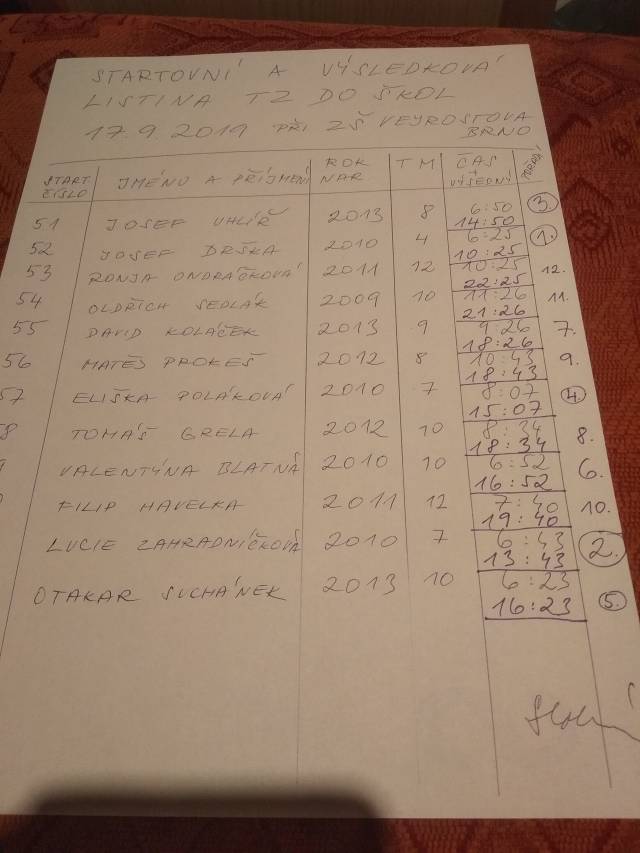 STARTOVNÍ A VÝSLEDKOVÁ
LISTINA TZ DO ŠKOL
17.9.2019 PŘI ZŠ VEJROSTOVA
BRNO
START. ČÍSLO JMÉNO A PŘÍJMENÍ ROK NAR. TM ČAS + VÝSLEDNÝ POŘADÍ
51 JOSEF UHLÍŘ 2013 8 6:50 3.
14:50
52 JOSEF DRŠKA 2010 4 6:25 1.
10:25
53 RONJA ONDRÁČKOVÁ 2011 12 10:25 12.
22:25
54 OLDŘICH SEDLÁK 2009 10 11:26 11.
21:26
55 DAVID KOLÁČEK 2013 9 9:26 7.
18:26
56 MATĚJ PROKEŠ 2012 8 10:43 9.
18:43
57 ELIŠKA POLÁKOVÁ 2010 7 8:07 4.
15:07
8 TOMÁŠ GRELA 2012 10 8:34 8.
18:34
VALENTÝNA BLATNÁ 2010 10 6:52 6.
16:52
FILIP HAVELKA 2011 12 7:40 10.
19:40
LUCIE ZAHRADNÍČKOVÁ 2010 7 6:43 2.
13:43
OTAKAR SUCHÁNEK 2013 10 6:23 5.
16:23